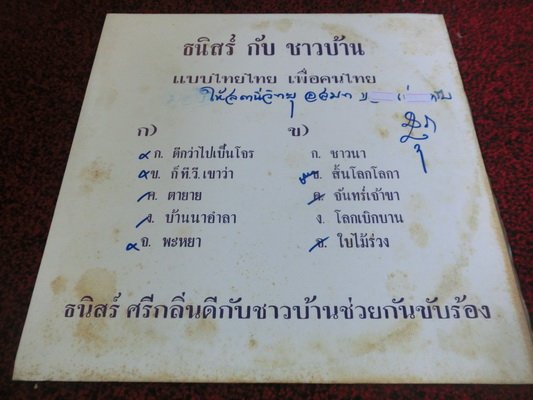 ธนิสร์ กับ ชาวบ้าน
แบบไทยไทย เพื่อคนไทย
ให้สถานีวิทยุ อสมท
ก) ข)
ก. ดีกว่าไปเป็นโจร ก. ชาวนา
ข. ก็ ที.วี. เขาว่า ข. สิ้นโลกโลกา
ค. ตายาย ค. จันทร์เจ้าขา
ง. บ้านนาอำลา ง. โลกเบิกบาน
จ. พะหยา จ. ใบไม้ร่วง
ธนิสร์ ศรีกลิ่นดีกับชาวบ้านช่วยกันขับร้อง